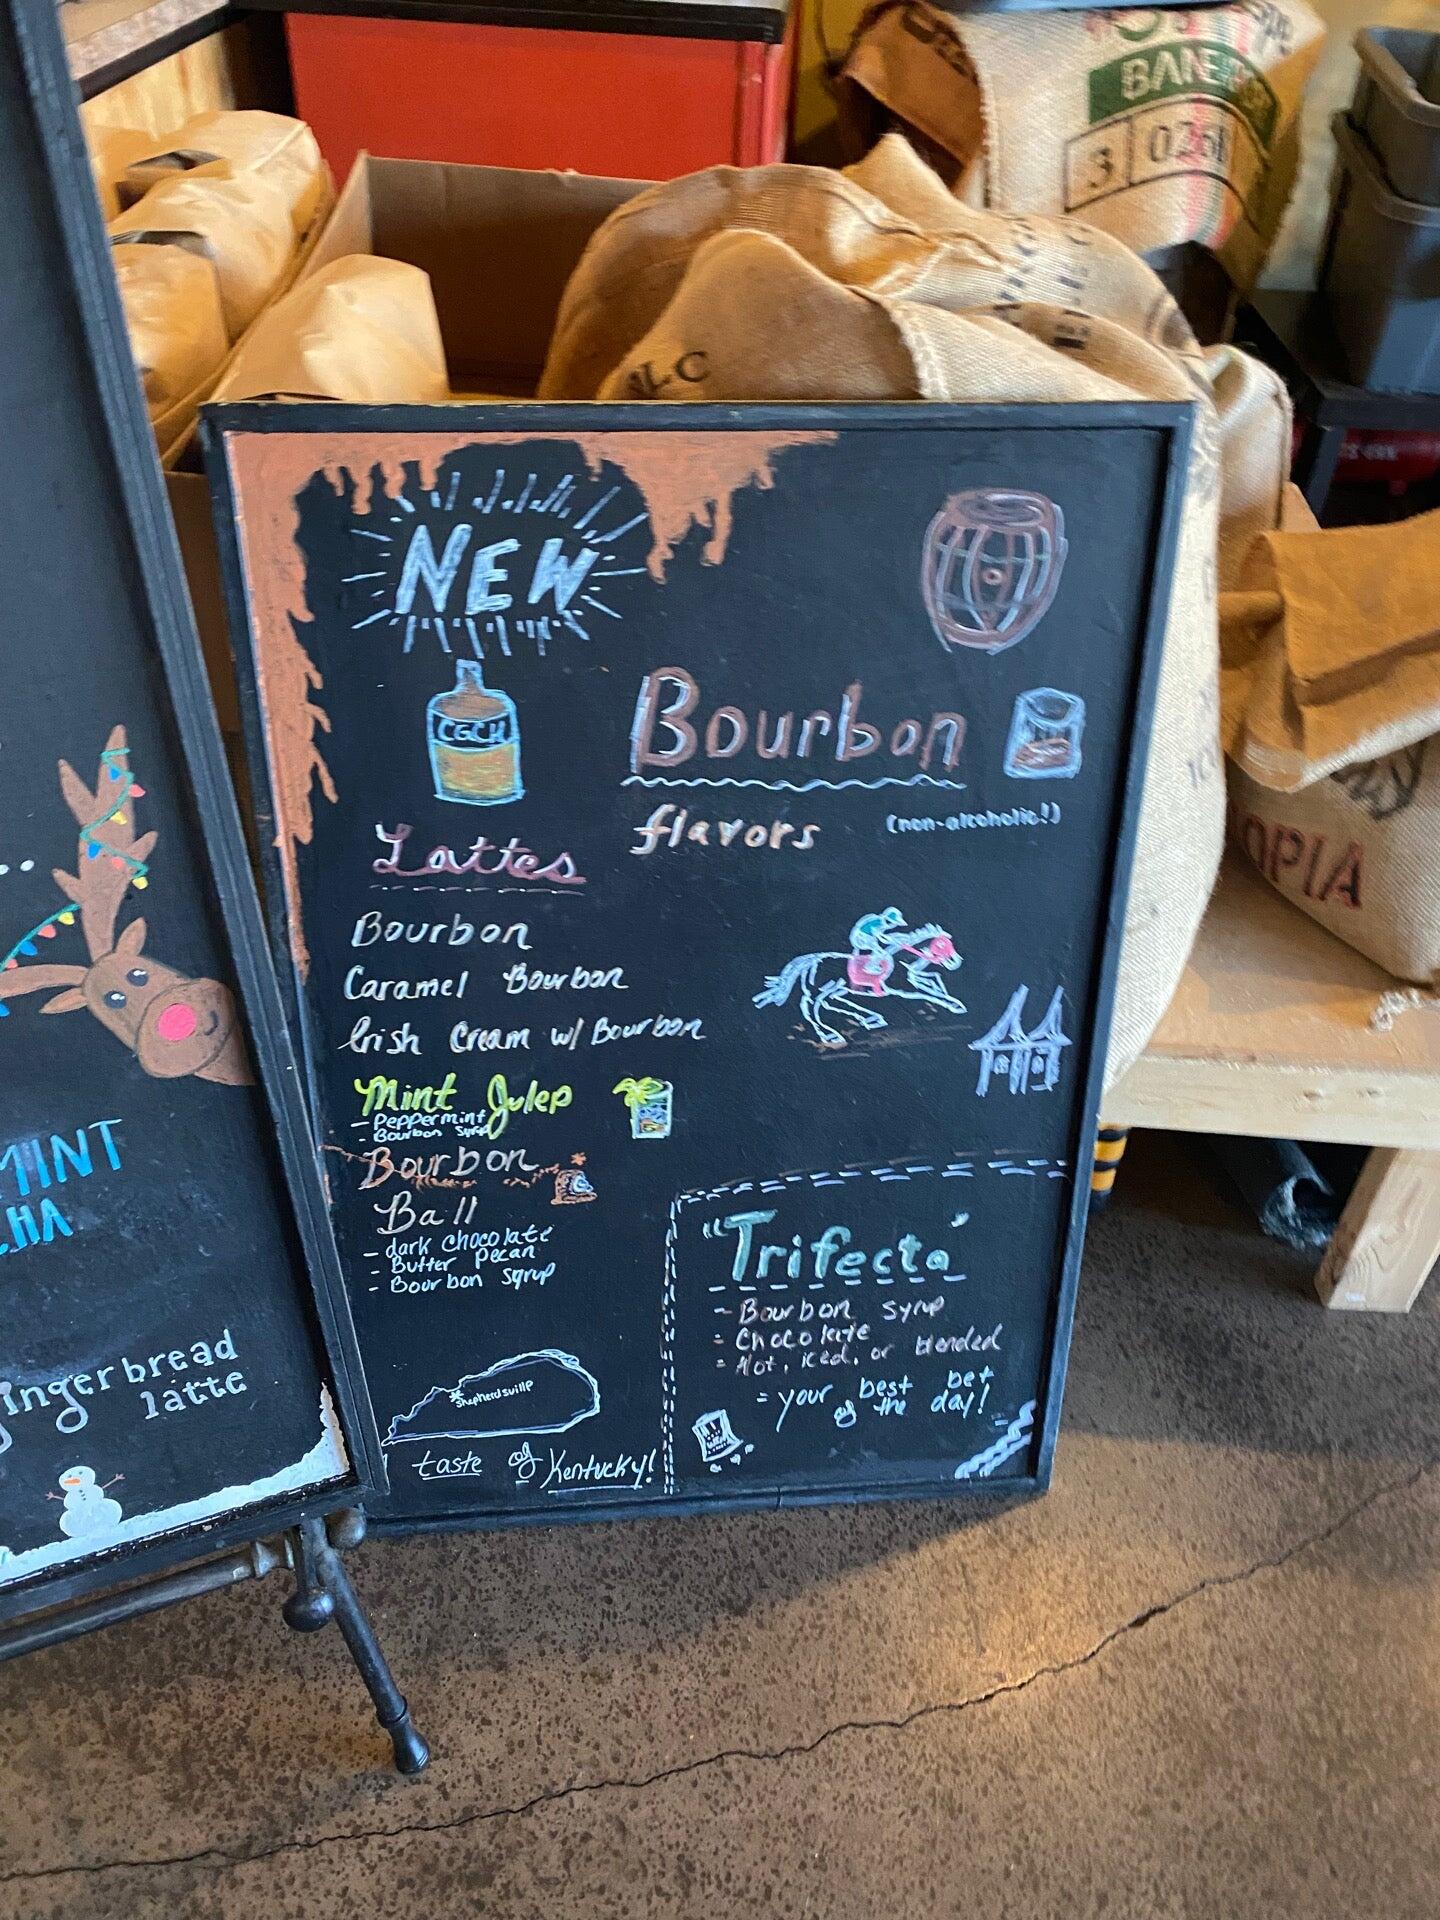 BANE
3 026
NEW
CGCH
Bourbon
flavors
(non-alcoholic!)
Lattes
Bourbon
Caramel Bourbon
Irish Cream w/ Bourbon
Mint Julep
- Peppermint
- Bourbon syrup
Bourbon
Ball
- dark chocolate
- Butter pecan
- Bourbon syrup
*Shepherdsville
taste of Kentucky!
"Trifecta"
- Bourbon syrup
- Chocolate
- Hot, iced, or blended
= your best bet
of the day!
MINT
gingerbread
latte
OPIA